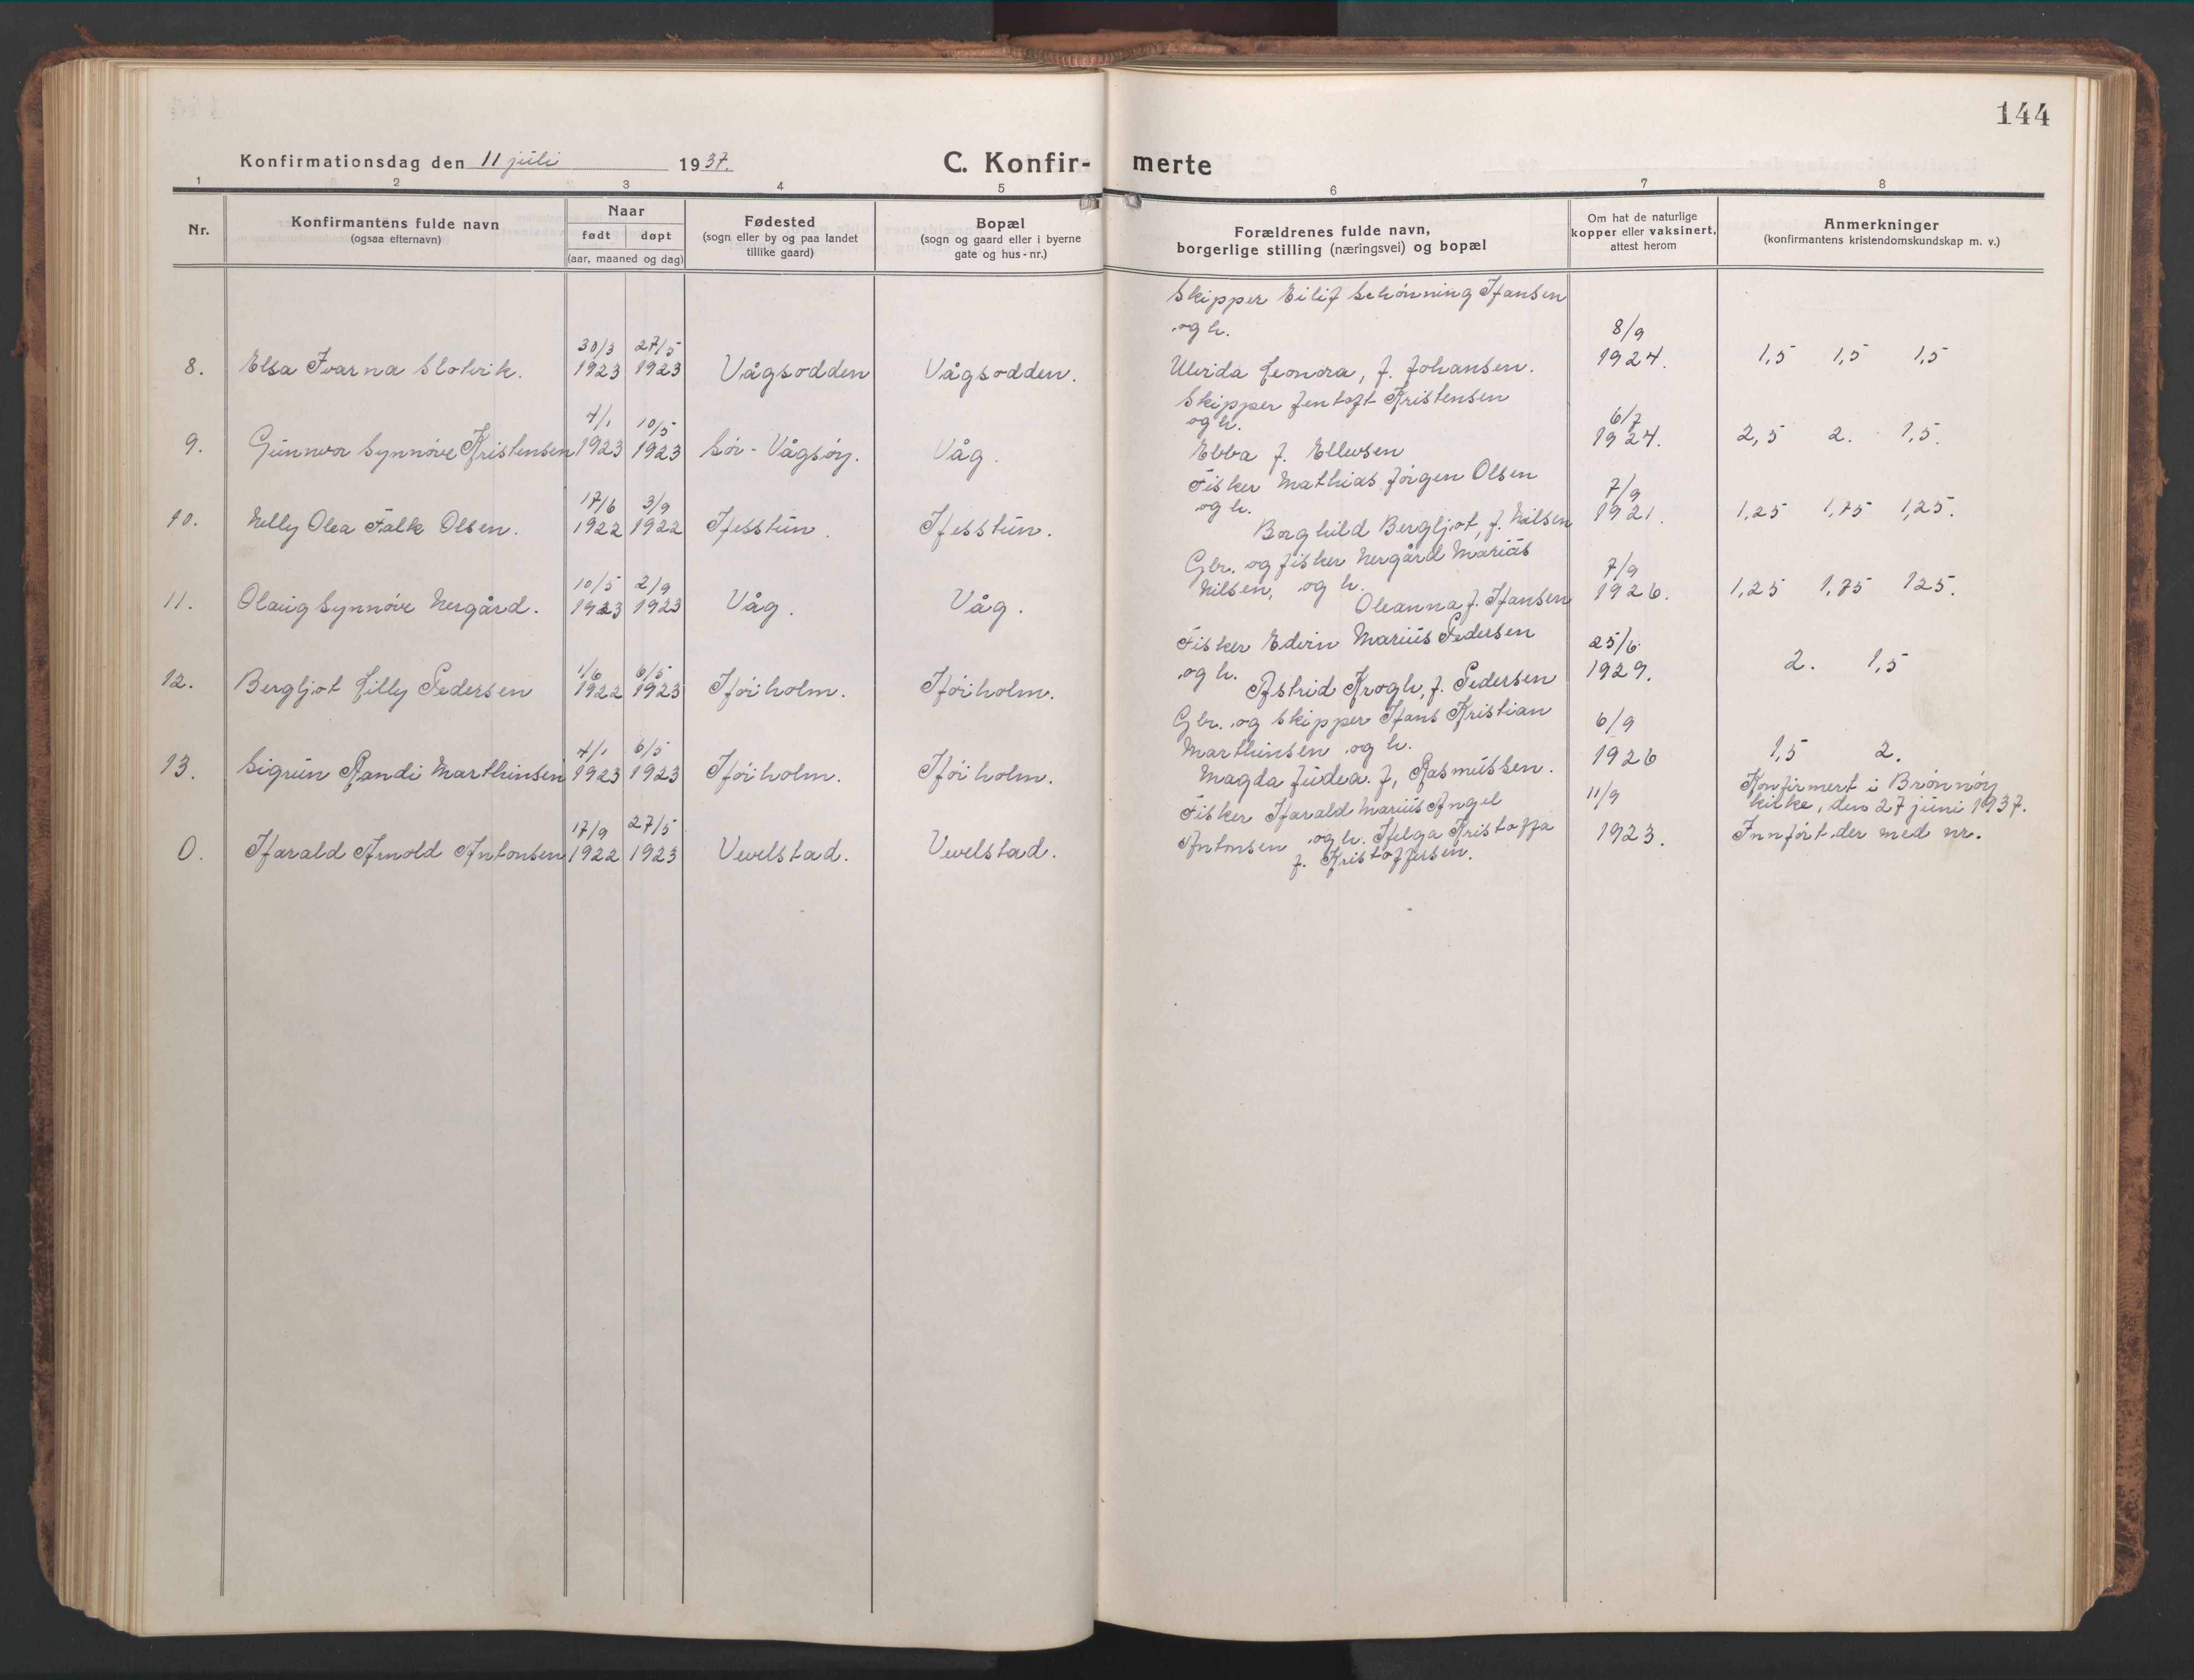 144
Konfirmationsdag den 11 juli 1937.
C. Konfir- merte
1 2 3 4 5 6 7 8
Nr.
Konfirmantens fulde navn
(ogsaa efternavn)
Naar
født døpt
(aar, maaned og dag)
Fødested
(sogn eller by og paa landet
tillike gaard)
Bopæl
(sogn og gaard eller i byerne
gate og hus-nr.)
Forældrenes fulde navn,
borgerlige stilling (næringsvei) og bopæl
Om hat de naturlige
kopper eller vaksinert,
attest herom
Anmerkninger
(konfirmantens kristendomskundskap m. v.)
Skipper Eilif Schønning Hansen
og h.
30/3 27/5 8/9
8. Elsa Ivarna Slotvik. 1923 1923 Vågsodden Vågsodden. Ulrida Leonora, f. Johansen. 1924. 1,5 1,5 1,5
Skipper Jentoft Kristensen
4/1 10/5 og h. 6/7
9. Gunnvor Synnøve Kristensen 1923 1923 Sør-Vågsøy. Våg. Ebba f. Ellevsen 1924. 2,5 2. 1,5.
Fisker Mathias Jørgen Olsen
17/6 3/9 og h. 7/9
10. Nelly Olea Falk Olsen. 1922 1922 Hesstun. Hesstun. Borghild Bergljot, f. Nilsen 1921. 1,25 1,75 1,25.
Gbr. og fisker Nergård Marius
10/5 2/9 Nilsen, og h. 7/9
11. Olaug Synnøve Nergård. 1923 1923 Våg. Våg. Oleanna f. Hansen 1926. 1,25 1,75 125.
Fisker Edvin Marius Pedersen
1/6 6/5 og h. 25/6
12. Bergljot Lilly Pedersen 1922 1923 Høiholm. Høiholm. Astrid Krogh, f. Pedersen 1929. 2. 1,5
Gbr. og skipper Hans Kristian
4/1 6/5 Marthinsen og h. 6/9
13. Sigrun Randi Marthinsen 1923 1923 Høiholm. Høiholm. Magda Judea. f, Rasmussen. 1926 1,5 2.
Fisker Harald Marius Angel 11/9 Konfirmert i Brønnøy
17/9 27/5 kirke, den 27 juni 1937.
0. Harald Arnold Antonsen 1922 1923 Vevelstad. Vevelstad. Antonsen og h. Helga Kristoffa 1923. Innført der med nr.
f. Kristoffersen.